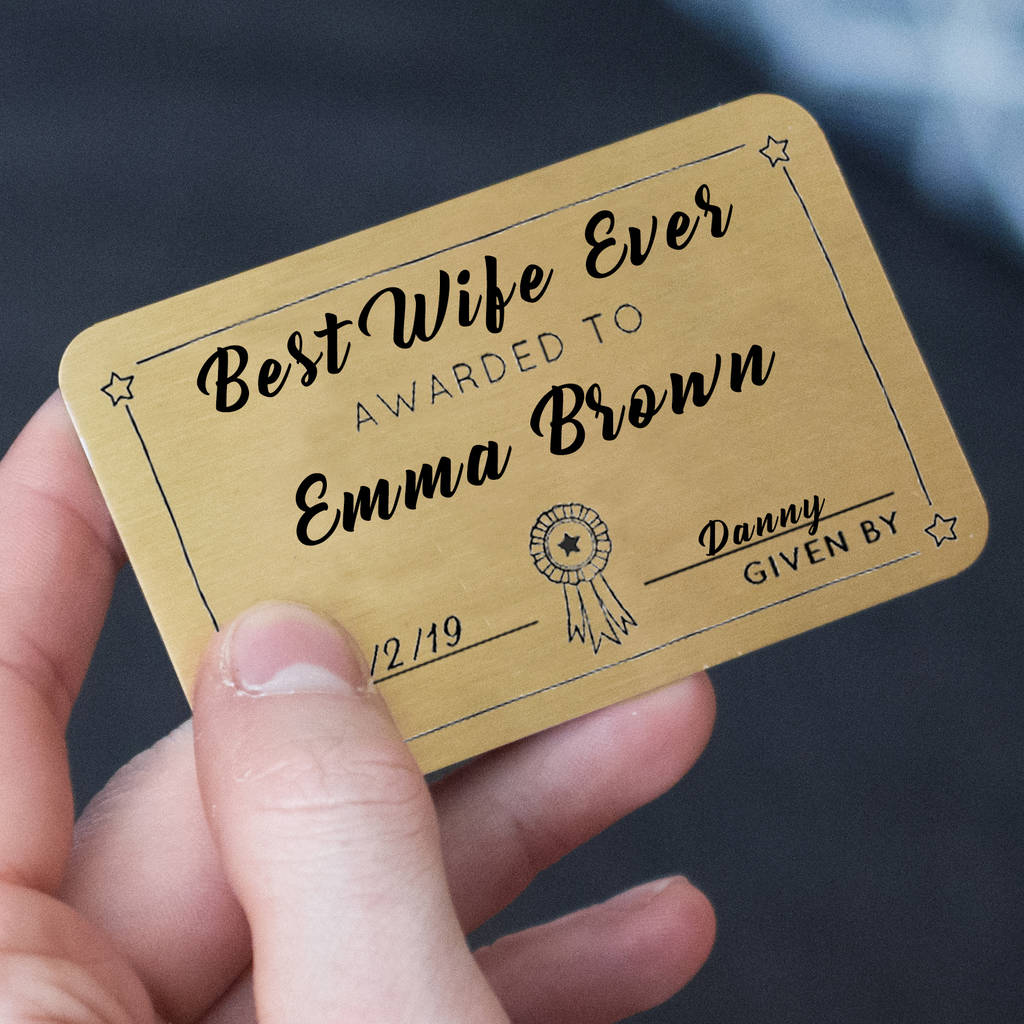 Best Wife Ever
AWARDED TO
Emma Brown
Danny
GIVEN BY
/2/19